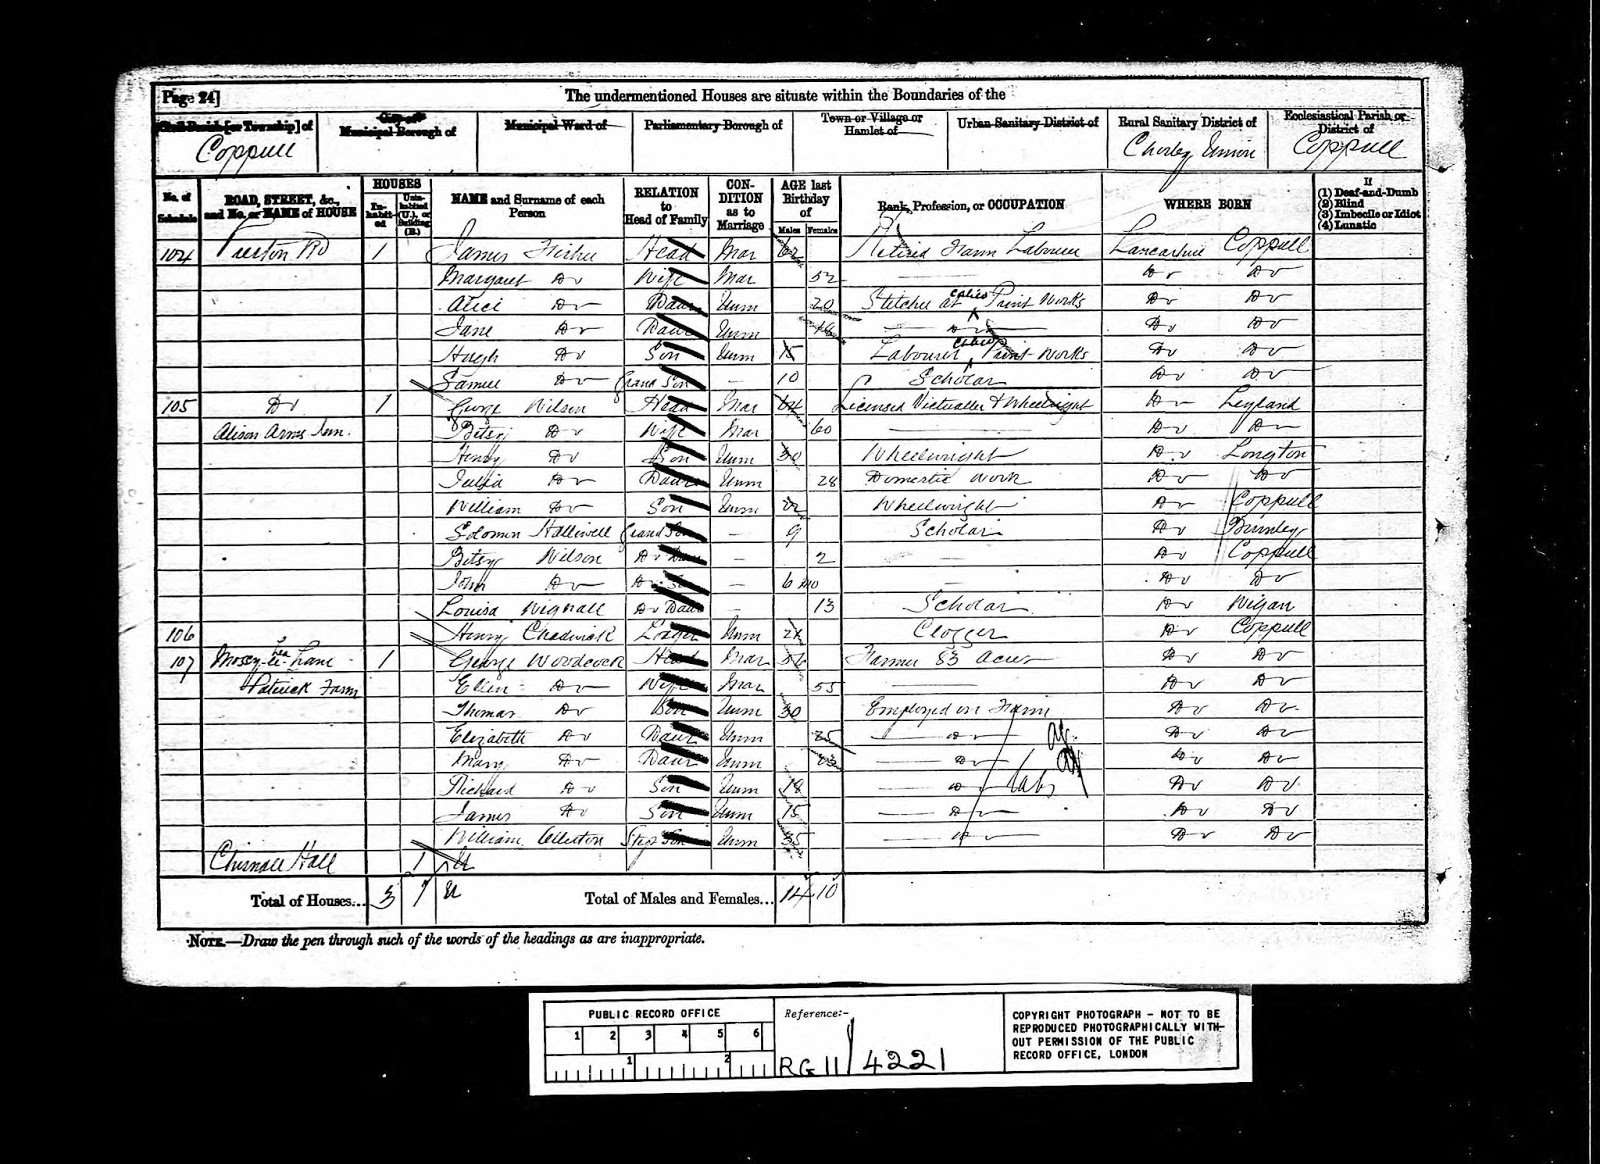 Page 24]
The undermentioned Houses are situate within the Boundaries of the
Civil Parish [or Township] of
City or Municipal Borough of
Municipal Ward of
Parliamentary Borough of
Town or Village or Hamlet of
Urban Sanitary District of
Rural Sanitary District of
Ecclesiastical Parish or District of
Coppull Chorley Union Coppull
No. of Schedule
ROAD, STREET, &c., and No. or NAME of HOUSE
HOUSES
In-habit-ed
Unin-habited (U.), or Building (B.)
NAME and Surname of each Person
RELATION to Head of Family
CON-DITION as to Marriage
AGE last Birthday of
Males Females
Rank, Profession, or OCCUPATION
WHERE BORN
If
(1) Deaf-and-Dumb
(2) Blind
(3) Imbecile or Idiot
(4) Lunatic
104 Preston Rd 1 James Head Mar 62 Retired Farm Labourer Lancashire Coppull
Margaret Do Wife Mar 52 Do Do
Alice Do Daur Unm 20 Stitcher at Calico Print Works Do Do
Jane Do Daur Unm Do Do Do
Hugh Do Son Unm 15 Labourer Calico Print Works Do Do
Samuel Do Grand Son — 10 Scholar Do Do
105 Do 1 George Wilson Head Mar 64 Licensed Victualler & Wheelwright Do Leyland
Alison Arms Inn. Betsy Do Wife Mar 60 Do Do
Henry Do Son Unm 30 Wheelwright Do Longton
Julia Do Daur Unm 28 Domestic Work Do Do
William Do Son Unm 22 Wheelwright Do Coppull
Solomon Halliwell Grand Son — 9 Scholar Do Burnley
Betsy Wilson Do Daur — 2 Do Coppull
John Do Do Son — 6 mo — Do Do
Louisa Wignall Do Daur — 13 Scholar Do Wigan
106 Henry Chadwick Lodger Unm Clogger Do Coppull
107 Mosey-lea-Lane 1 George Woodcock Head Mar 56 Farmer 83 Acres Do Do
Patrick Farm Ellen Do Wife Mar 55 Do Do
Thomas Do Son Unm 30 Employed on Farm Do Do
Elizabeth Do Daur Unm 25 Do Do Do
Mary Do Daur Unm 23 Do Do Do
Richard Do Son Unm 18 Do Do Do
James Do Son Unm 15 Do Do Do
William Step Son Unm 35 Do Do Do
Chisnall Hall 1 U
Total of Houses... 3 1 U Total of Males and Females... 14 10
NOTE.—Draw the pen through such of the words of the headings as are inappropriate.
PUBLIC RECORD OFFICE
1 2 3 4 5 6
1 2
Reference:-
RG 11 / 4221
COPYRIGHT PHOTOGRAPH - NOT TO BE
REPRODUCED PHOTOGRAPHICALLY WITH-
OUT PERMISSION OF THE PUBLIC
RECORD OFFICE, LONDON